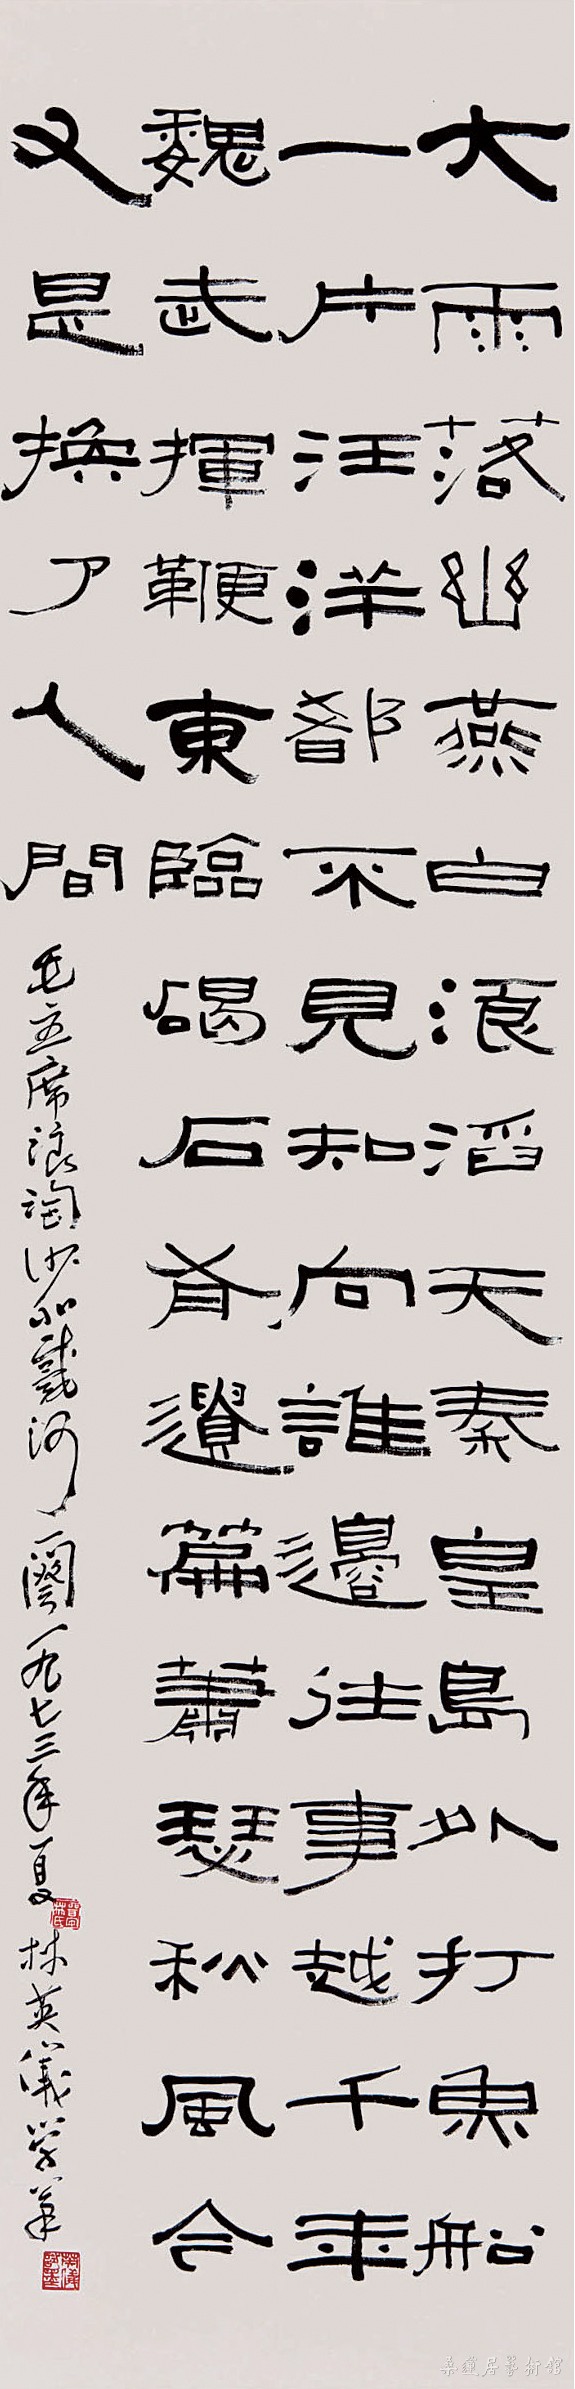 大雨落幽燕白浪滔天秦皇島外打魚船
一片汪洋都不見知向誰邊往事越千年
魏武揮鞭東臨碣石有遺篇蕭瑟秋風今
又是換了人間
毛主席浪淘沙北戴河一闋一九七三年夏林英儀学